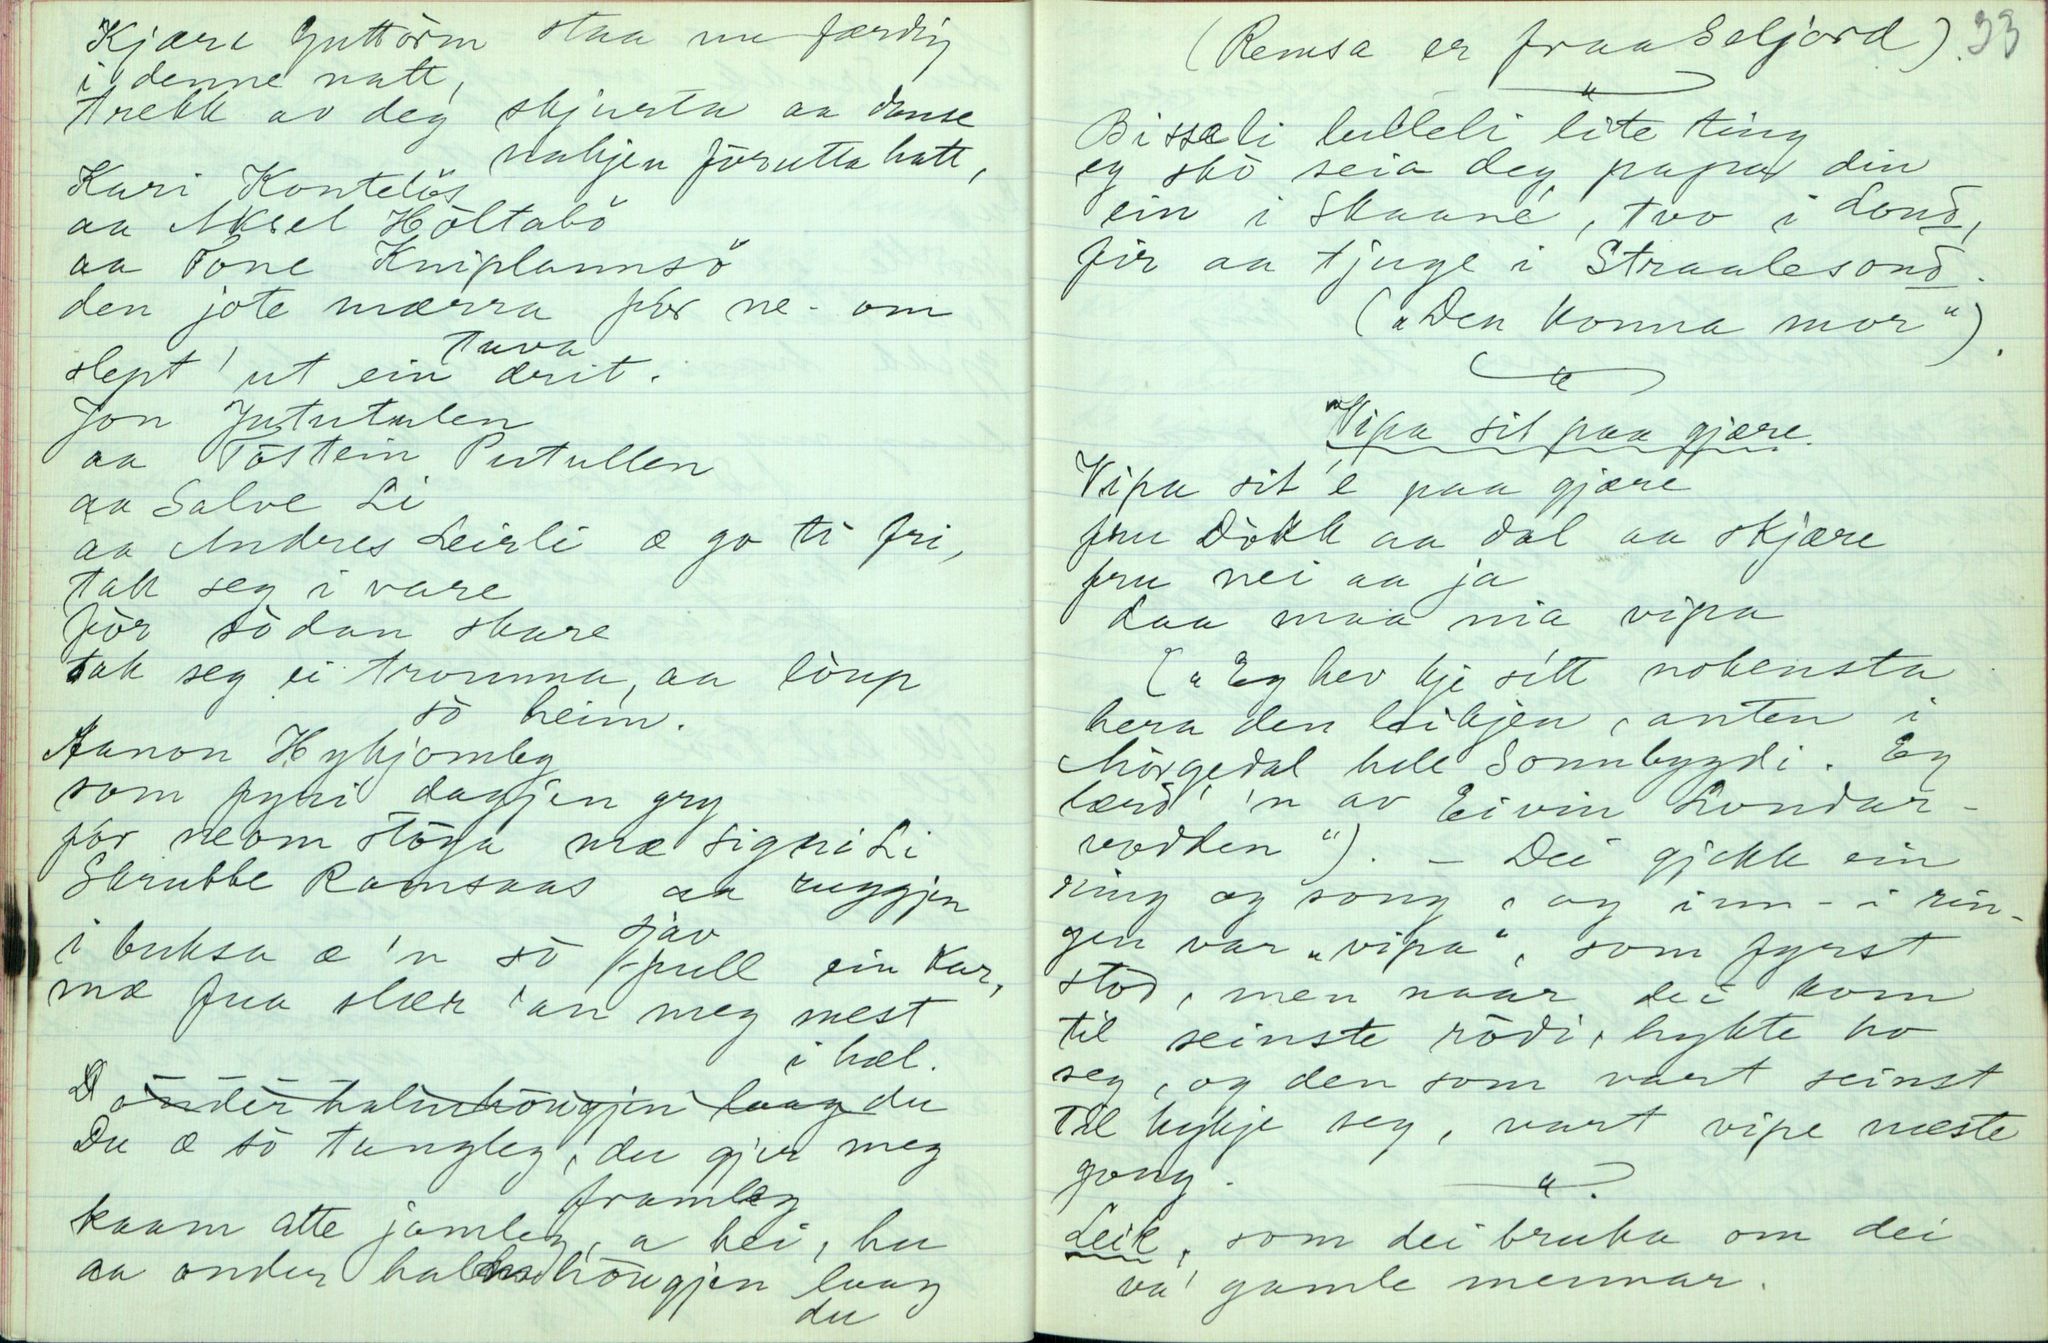 Kjære Guttorm staa nu færdig
i denne natt,
trekk av deg skjurta aa danse
nakjen fōrutta hatt,
Kari Kontelōs
aa Aksel Hōltabō
aa Tōne Kniplannsō
den jote mærra fōr ne - om
tuva
slept' ut ein drit.
Jon Jututulen
aa Tōstein Putullen
aa Salve Li
aa Andres Leirli æ go ti fri,
tak seg i vare
fōr sōdan skare
tak seg ei tromma, aa lōup
sō heim.
Aanon Hykjomby
som fyri dagjen gry
fōr neom stōga mæ Signi Li
Skrubbe Ramsaas aa ruggjen
i buksa æ 'n sō
sjav
full ein kar,
mæ fua slær 'an meg mest
i hæl.
ōnder halmhōugjen laag du
Du æ sō tungleg, du gjer meg
framleg
kaam atte jamleg, a hei, hu
aa onder halmhōugjen laag
du
33
(Remsa er fraa Seljord).
Bisseli lulleli lite ting
eg skō seia deg papa din
ein i Skaane, tvo i Lond,
fir aa tjuge i Straalesond.
("Den konna mor").
"Vipa sit paa gjære.
Vipa sit'e paa gjære
fru Dōkk aa dal aa skjære
fru nei aa ja
daa maa nia vipa
("Eg hev kje sitt nokensta
hera den leikjen, anten i
Mōrgedal hell Sonnbygdi. Eg
lærd' 'n av Eivin Londar-
vodden"). - Dei gjekk ein
ring og song, og inn - i rin-
gen var "vipa", som fyrst
stod, men naar dei kom
til seinste rōdi, hykte ho
seg, og den som vart seinst
til hykje seg, vart vipe næste
gong.
Leik, som dei bruka om dei
va' gamle mennar.